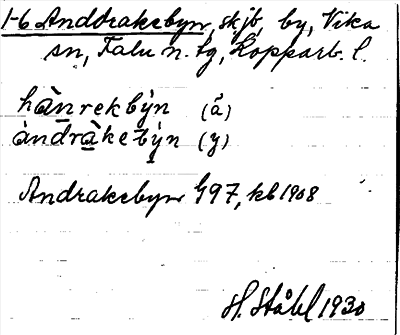 1-6 Anddrakebyn, skjb, by, Vika
sn, Falu n. tg, Kopparb. l.
hànrekbýn (å)
àndràkebýn (y)
Andrakebyn G97, kb 1908
H. Ståhl 1930